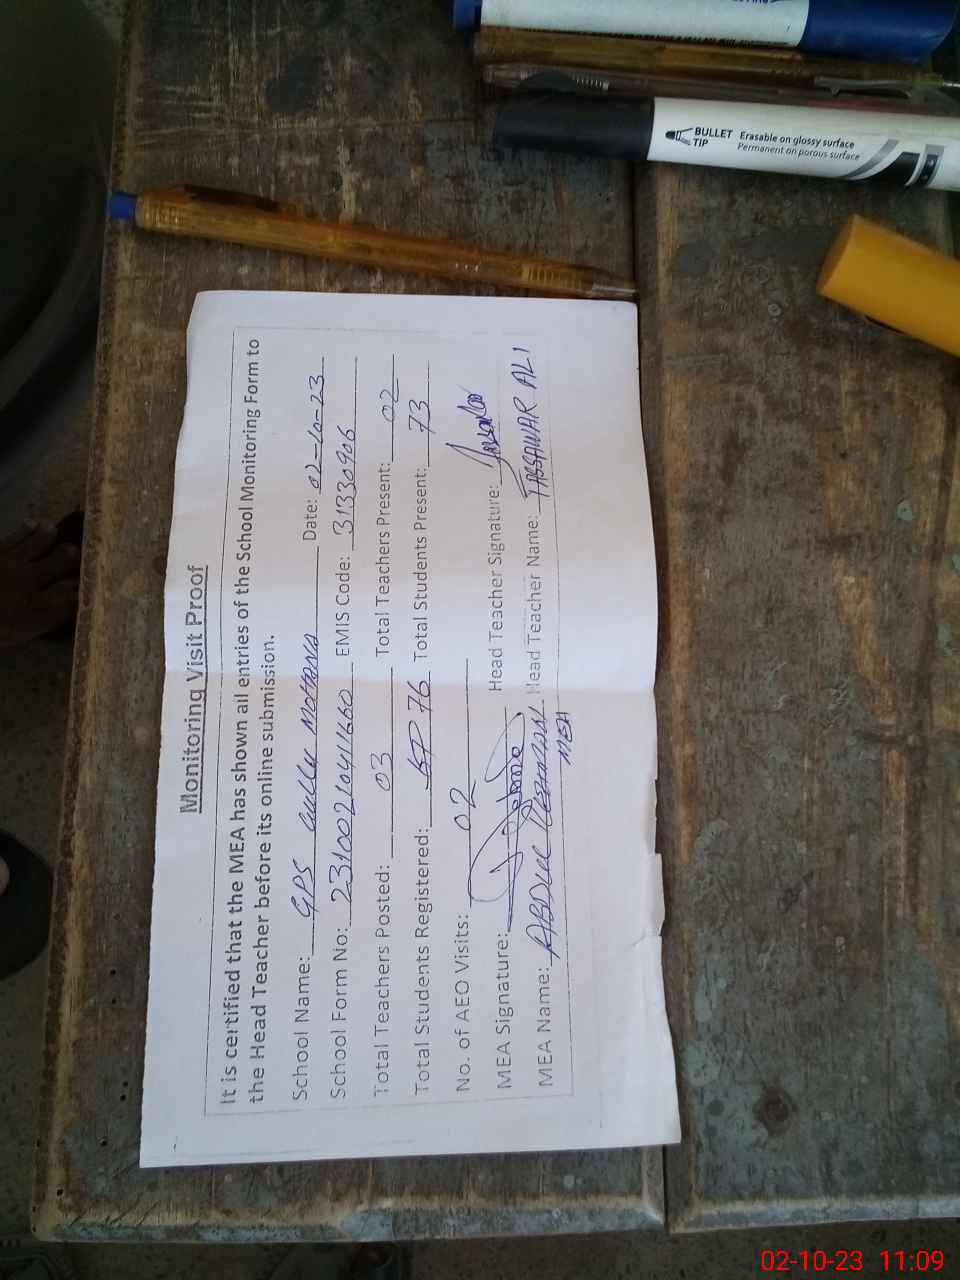 Monitoring Visit Proof
It is certified that the MEA has shown all entries of the School Monitoring Form to
the Head Teacher before its online submission.
School Name: GPS Gullu MOHANA Date: 02-10-23
School Form No: 23100210411660 EMIS Code: 31330906
Total Teachers Posted: 03 Total Teachers Present: 02
Total Students Registered: 76 Total Students Present: 73
No. of AEO Visits: 02
MEA Signature: Head Teacher Signature:
MEA Name: ABDUL REHMAN Head Teacher Name: TASSAWAR ALI
MEA
BULLET TIP
Erasable on glossy surface
Permanent on porous surface
02-10-23 11:09